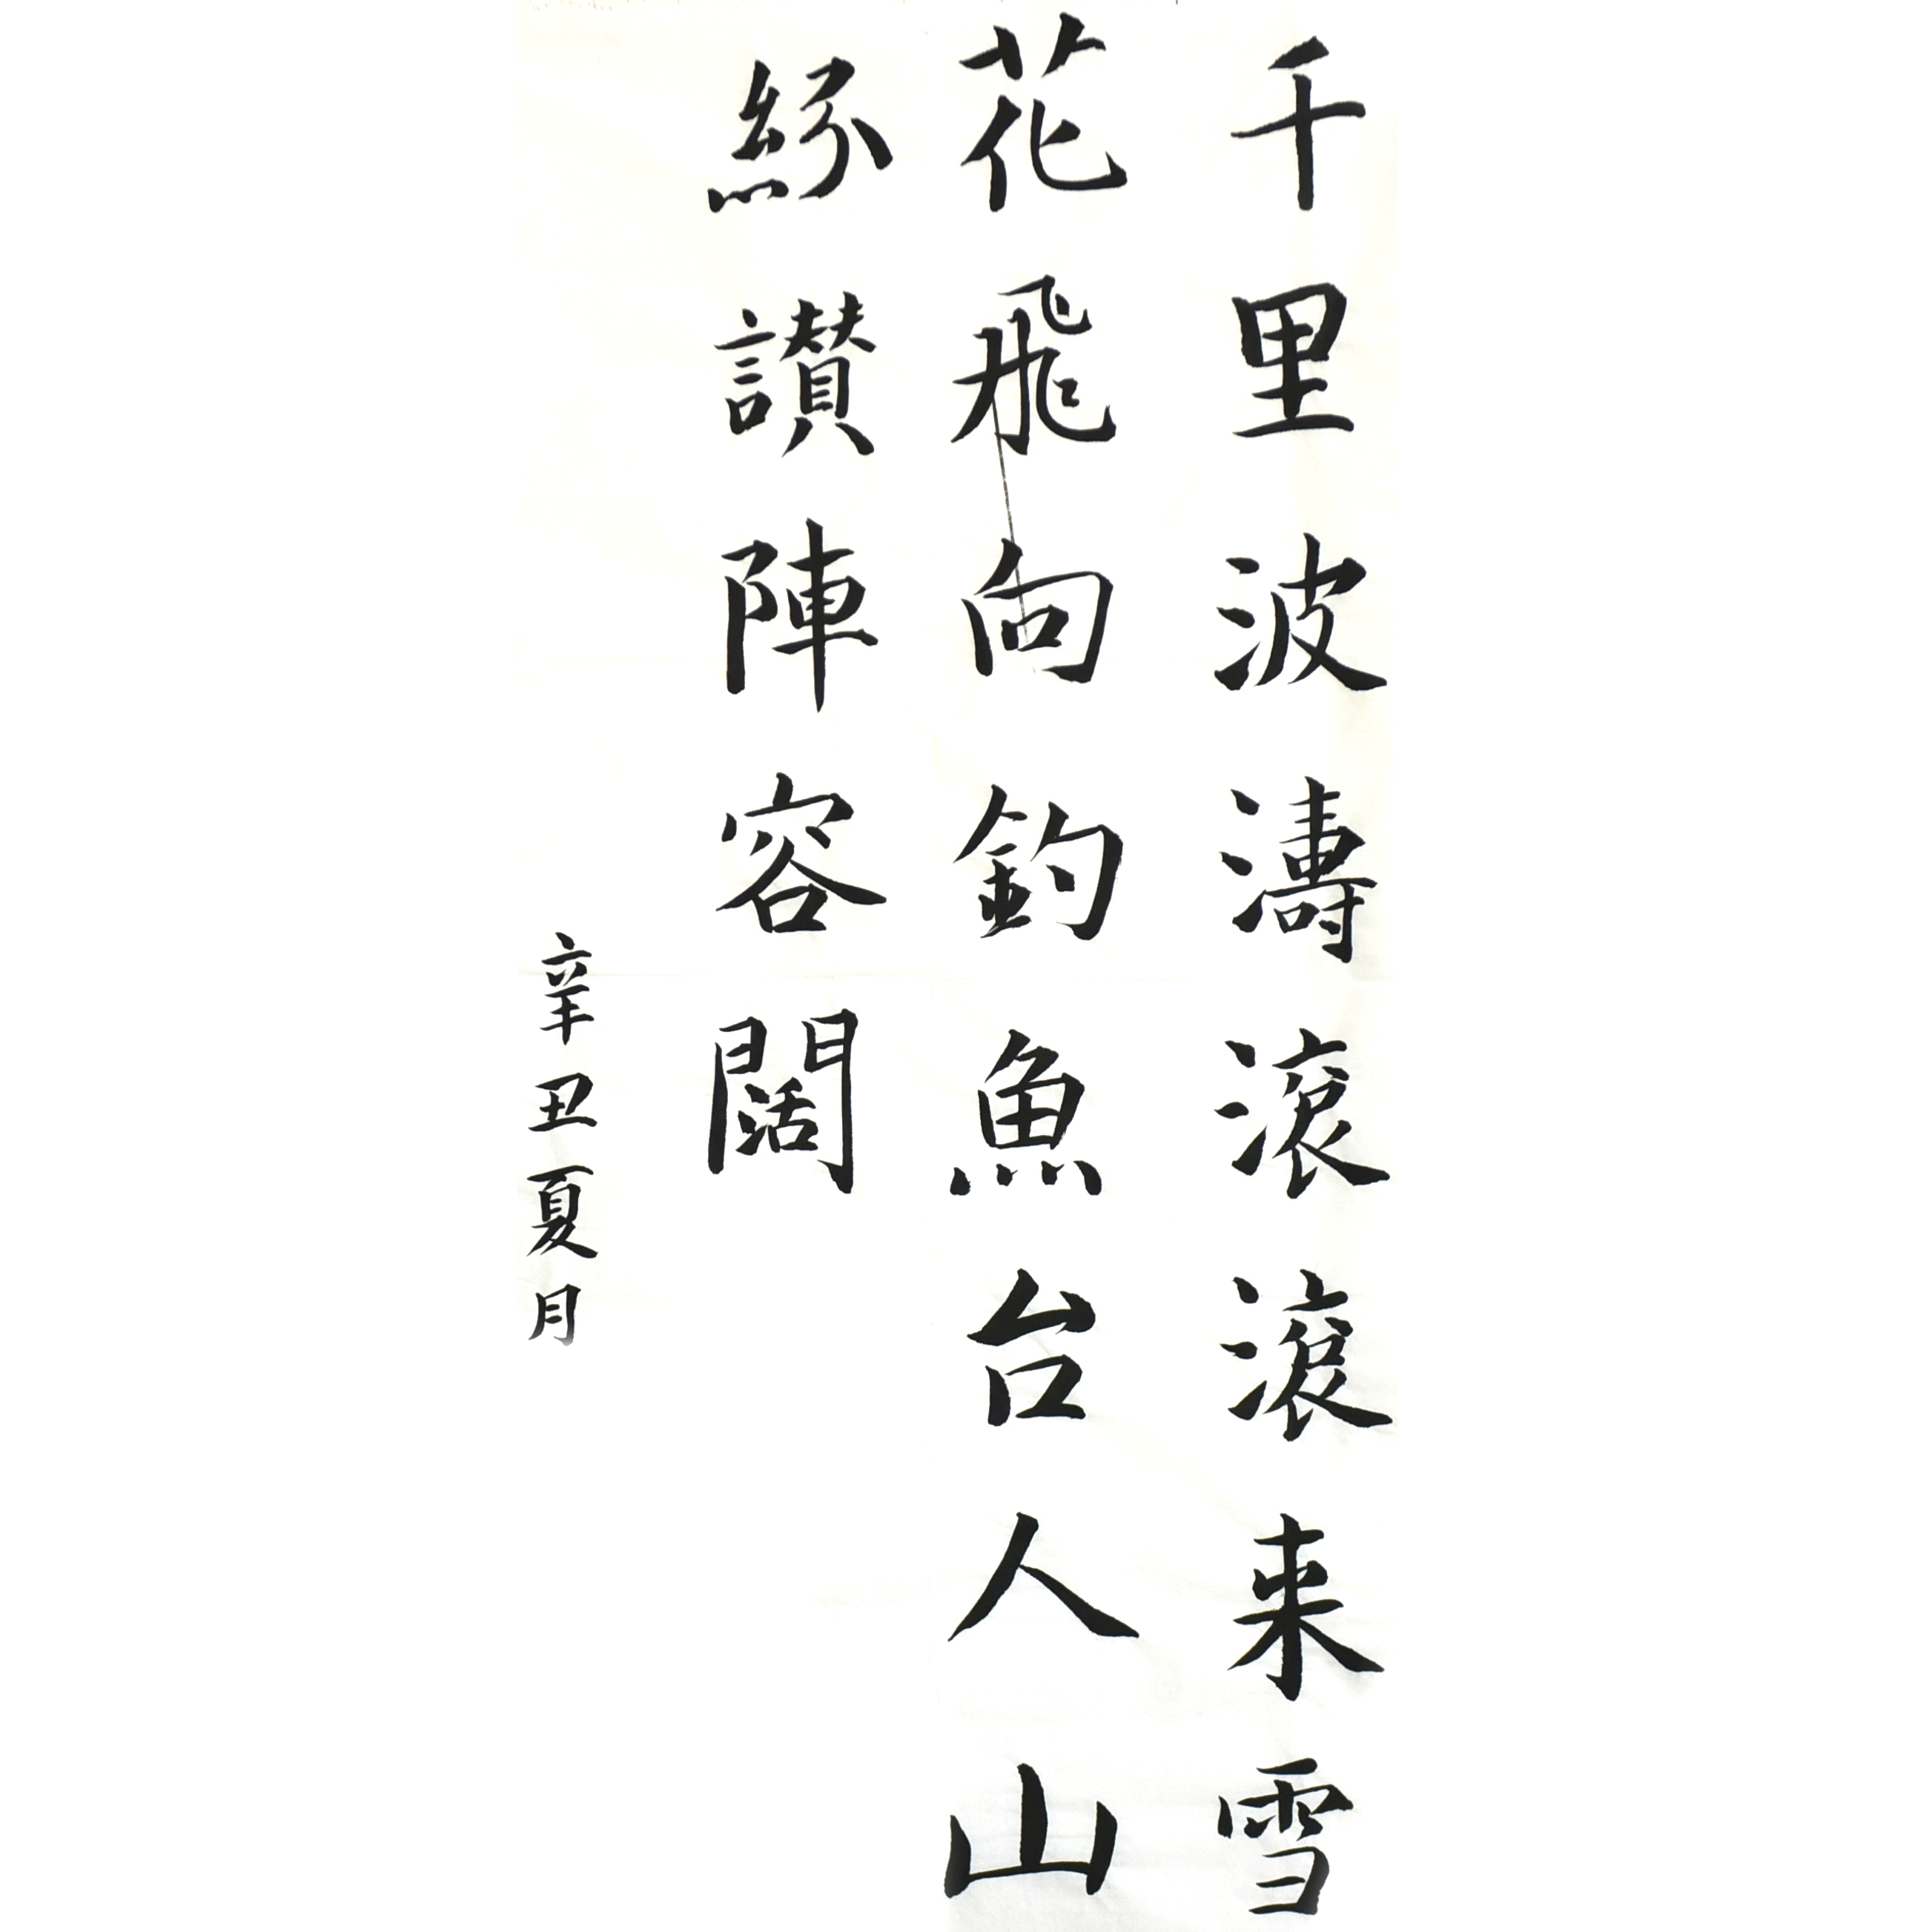 千里波濤滚滚来雪
花飛向釣魚台人山
紛讃陣容闊
辛丑夏月